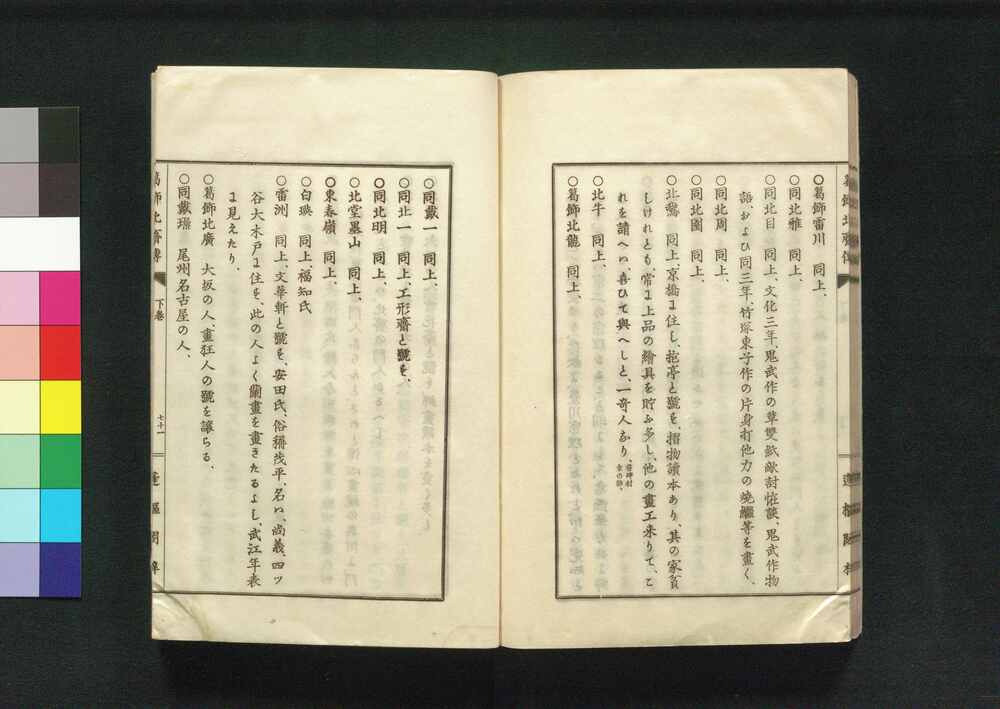 ○葛飾雷川　同上、
○同北雅　同上、
○同北目　同上、文化三年、鬼武作の草雙紙敵討怪談、鬼武作物
語、および同三年、竹塚東子作の片身打他力の燒繼等を畫く、
○同北周　同上、
○同北園　同上、
○北鵞　同上、京橋に住し、抱亭と號を、摺物讀本あり、其の家貧
しけれども、常に上品の繪具を貯ふ多し、他の畫工来りて、こ
れを請へバ、喜ひて與へしと、一奇人なり、
○北牛　同上、
○葛飾北龍　同上、
葛飾北齋傳
○同戴一　同上、
○同北一　同上、工形齋と號を、
○同北明　同上、
○北堂墨山　同上、
○東春嶺　同上、
○白瑛　同上、福知氏
○雷洲　同上、文華軒と號を、安田氏、俗稱茂平、名ハ、尚義、四ッ
谷大木戸に住を、此の人よく蘭畫を畫きたるよし、武江年表
に見えたり、
○葛飾北廣　大坂の人、畫狂人の號を讓らる、
○同戴璪　尾州名古屋の人、
葛飾北齋傳
下卷
七十一